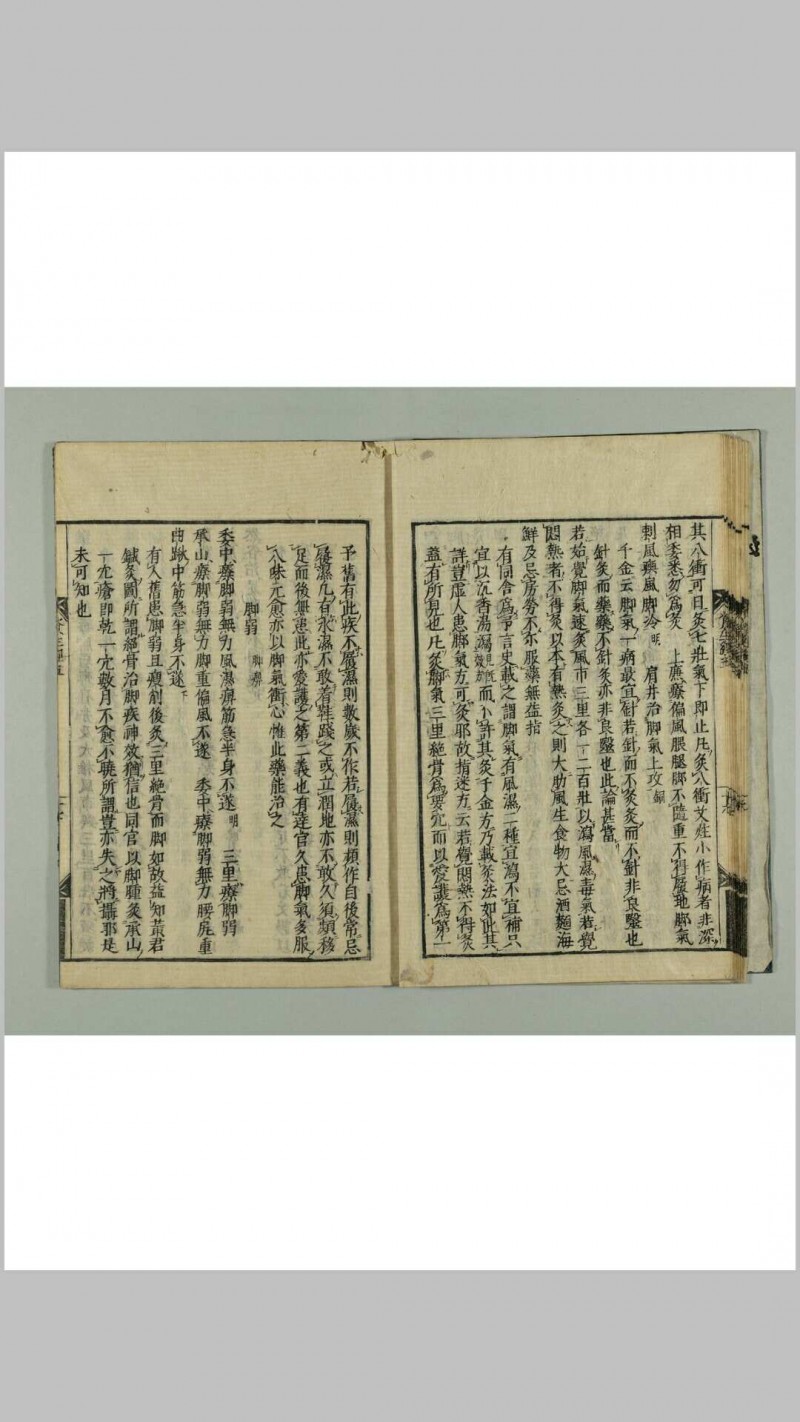 其八衝可日灸七壯氣下即止凡灸八衝艾炷小作病者非深
相委悉勿爲灸　上廉療偏風腲腿脚不隨重不得履地脚氣
刺風療風脚冷明　肩井治脚氣上攻銅
千金云脚氣一病最宜針若針而不灸灸而不針非良醫也
針灸而藥藥不針灸亦非良醫也此論甚當
若始覺脚氣速灸風市三里各一二百壯以瀉風濕毒氣若覺
悶熱者不得灸以本有熱灸之則大助風生食物大忌酒麵海
鮮及忌房勞不亦服藥無益指
有同舍爲予言史載之謂脚氣有風濕二種宜瀉不宜補只
宜以沉香湯瀉之而不許其灸千金方乃載灸法如此其
詳豈虛人患脚氣方可灸耶故指迷方云若覺悶熱不得灸
益有所見也凡灸脚氣三里絶骨爲要穴而以愛護爲第一
予舊有此疾不履濕則數歲不作若履濕則頻作自後常忌
履濕凡有水濕不敢着鞋踐之或立潤地亦不敢久須頻移
足而後無患此亦愛護之第二義也有達官久患脚氣多服
八味元愈亦以脚氣衝心惟此藥能治之
脚弱　脚痹
委中療脚弱無力風濕痹筋急半身不遂明　三里療脚弱
承山療脚弱無力脚重偏風不遂　委中療脚弱無力腰尻重
曲瞅中筋急半身不遂下
有人舊患脚弱且瘦削後灸三里絶骨而脚如故益知黃君
鍼灸圖所謂絕骨治脚疾神效猶信也同官以脚腫灸承山
一穴瘡即乾一穴數月不愈不曉所謂豈亦失之將攝耶是
未可知也